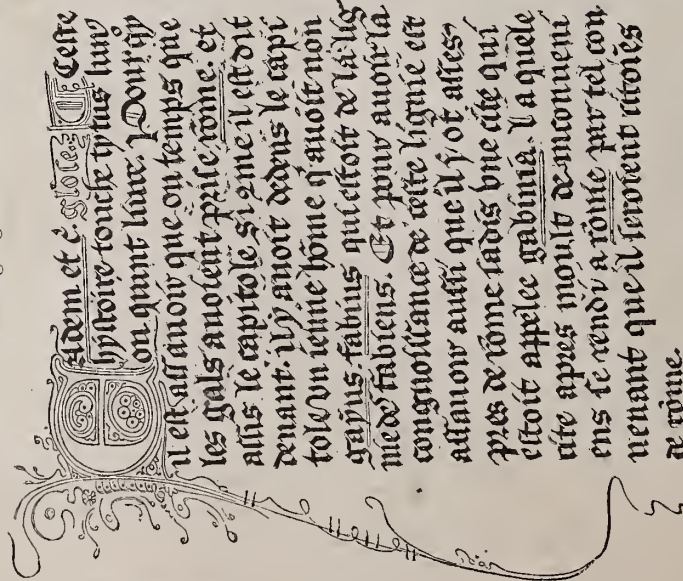 Eidem et c̄. glose. Ceste
hystoire touche tytus liuiꝰ
ou quint liure. Pour quoy
il est assauoir que ou temps que
les gals auoient prise rōme. et
assis le capitole si ꝯme il est dit
deuant. il y auoit dedens le capi
tole vn ienne hōme q̄ auoit non
gayus fabius qui estoit de la lig
nie des fabiens. Et pour auoir la
congnoissance de ceste lignie est
assauoir aussi que il y ot asses
pres de rome iadis vne cite qui
estoit appelee gabinia. La quele
cite apres moult de inconueni
ens se rendi a rōme par tel con
uenant que il seroient citoiēs
de rōme.